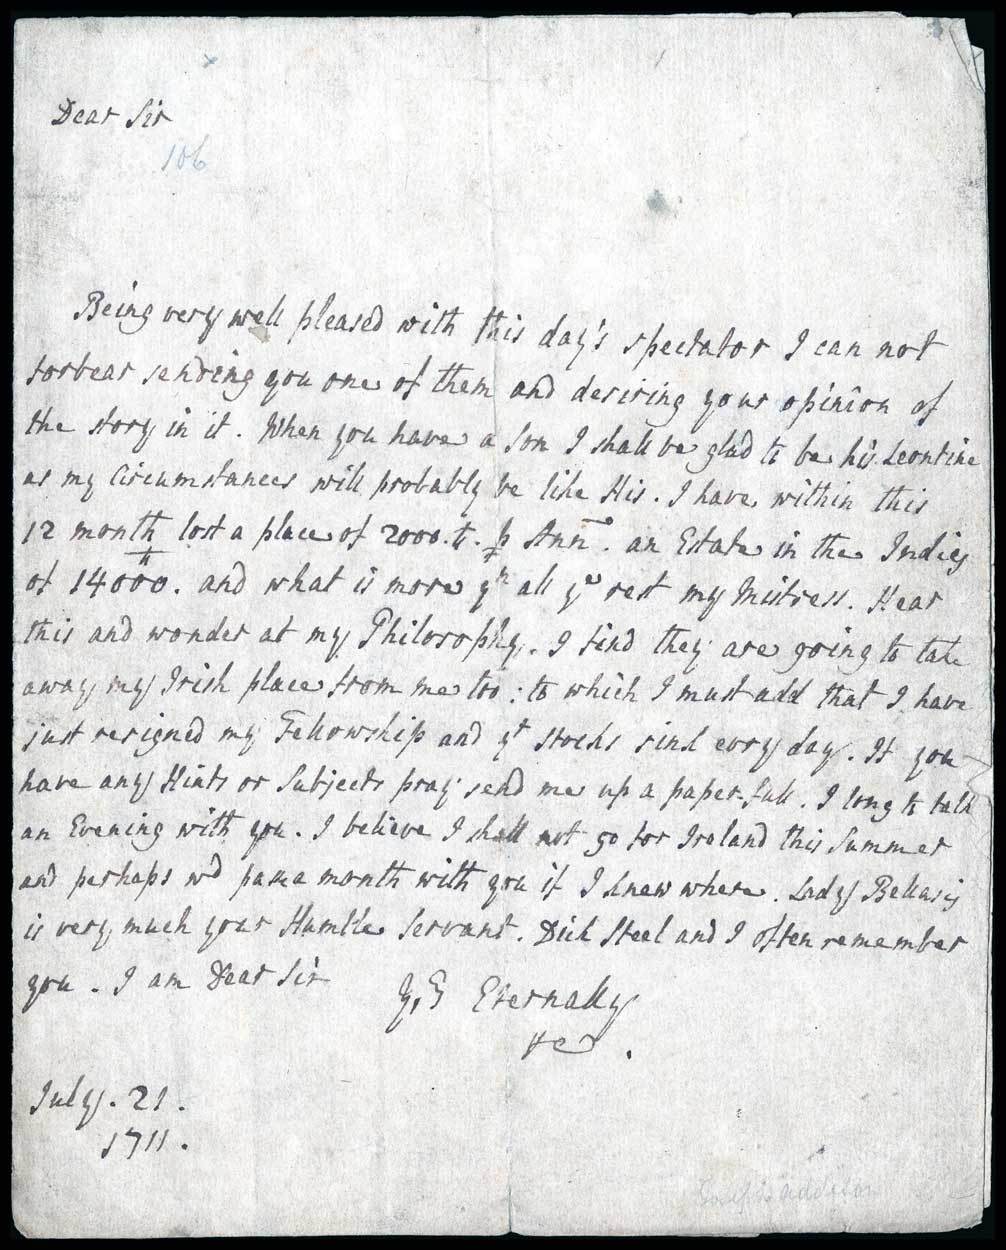 Dear Sir
106
Being very well pleased with this day's spectator I can not
forbear sending you one of them and desiring your opinion of
the story in it. When you have a son I shall be glad to be his Leontine
as my Circumstances will probably be like His. I have within this
12 month lost a place of 2000.ₗ. ꝑ Ann̄. an Estate in the Indies
of 14000. and what is more yⁿ all yᵉ rest my Mistress. Hear
this and wonder at my Philosophy. I find they are going to take
away my Irish place from me too: to which I must add that I have
just resigned my Fellowship and yᵗ stocks sink every day. If you
have any Hints or Subjects pray send me up a paper-full. I long to talk
an Evening with you. I believe I shall not go for Ireland this Summer
and perhaps wᵈ passe a month with you if I knew where. Lady Bellasis
is very much your Humble Servant. Dick Steel and I often remember
you. I am Dear Sir
Eternally
July. 21.
1711.